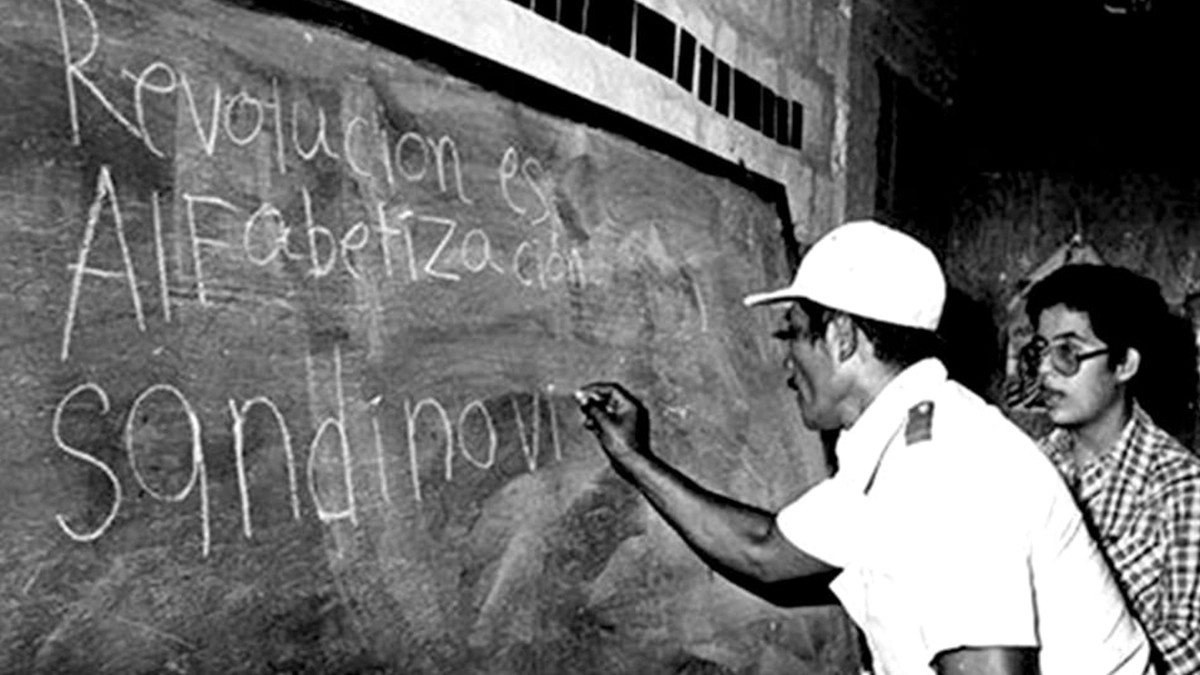 Revolucion es
AlFabetización
sandinovi